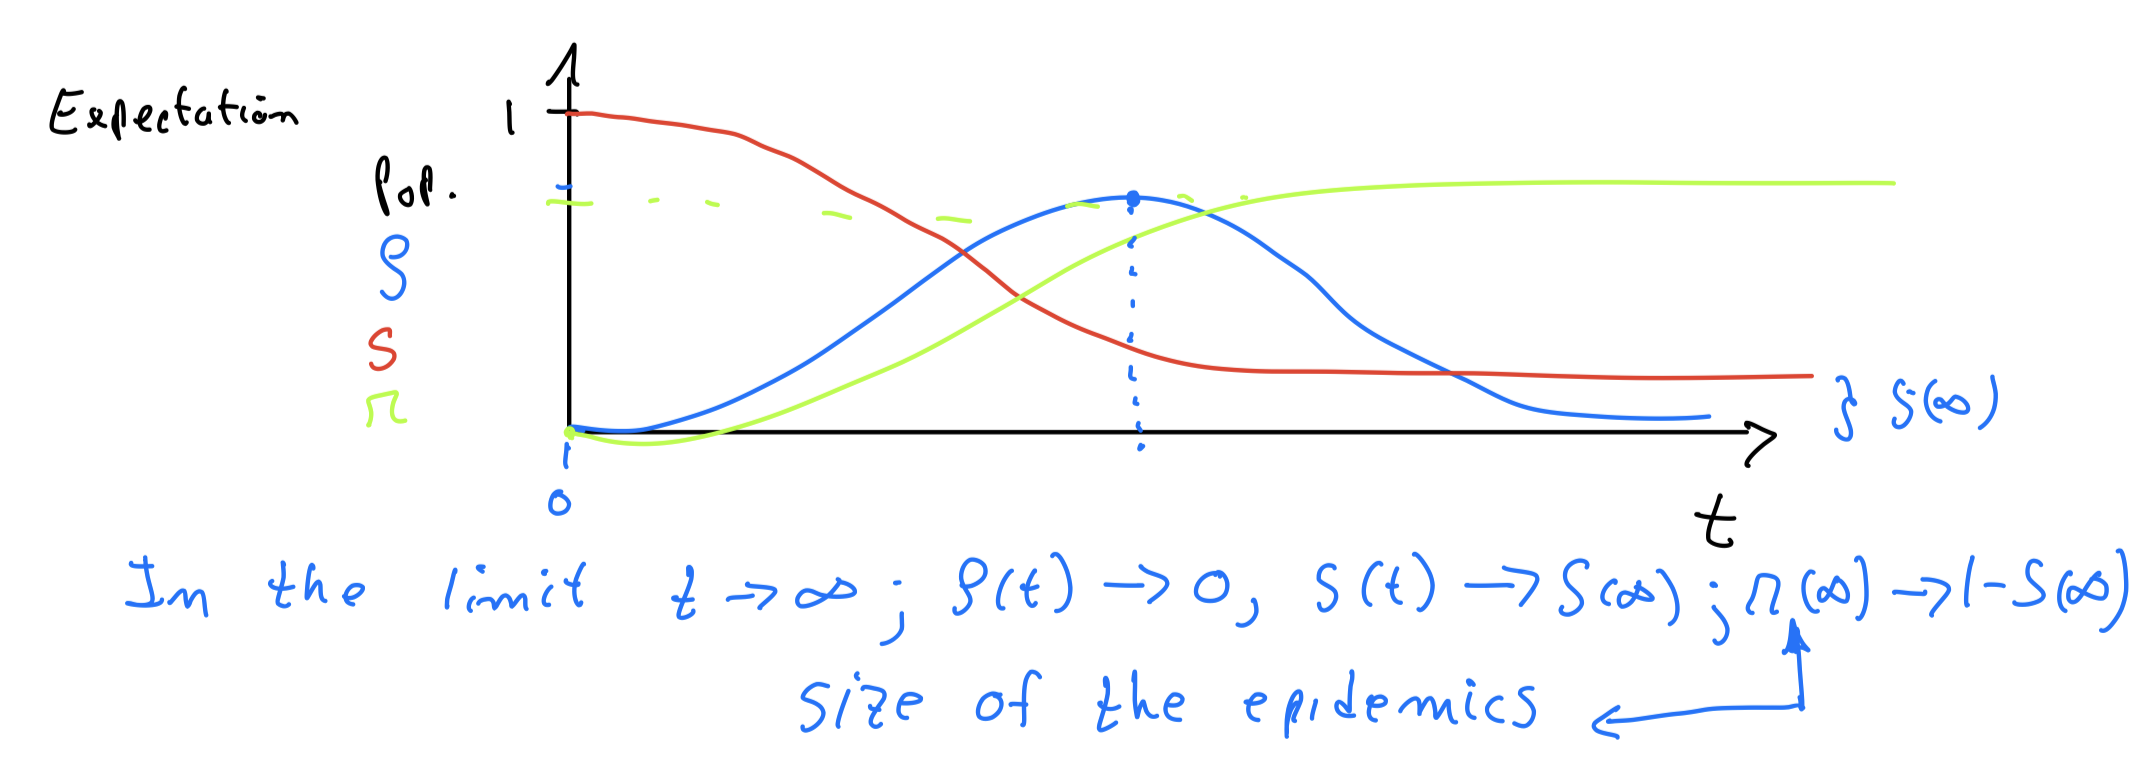 Expectation
1
Pop.
ρ
S
r
} S(∞)
0
t
In the limit t → ∞ ; ρ(t) → 0, S(t) → S(∞) ; r(∞) → 1 - S(∞)
size of the epidemics ←